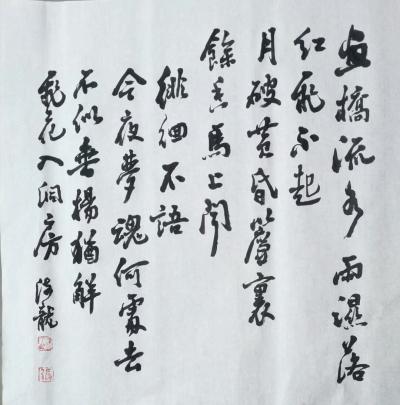 畫橋流水雨濕落
紅飛不起
月破黄昏簾裏
餘香馬上聞
徘徊不語
今夜夢魂何處去
不似垂揚猶解
飛花入洞房 龍